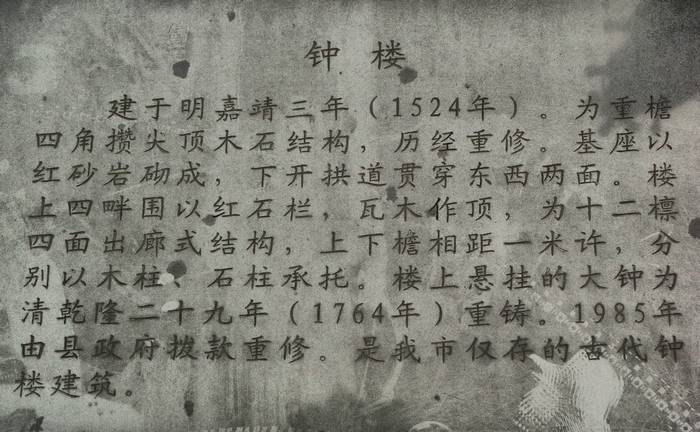 钟楼
建于明嘉靖三年（1524年）。为重檐
四角攒尖顶木石结构，历经重修。基座以
红砂岩砌成，下开拱道贯穿东西两面。楼
上四畔围以红石栏，瓦木作顶，为十二檩
四面出廊式结构，上下檐相距一米许，分
别以木柱、石柱承托。楼上悬挂的大钟为
清乾隆二十九年（1764年）重铸。1985年
由县政府拨款重修。是我市仅存的古代钟
楼建筑。